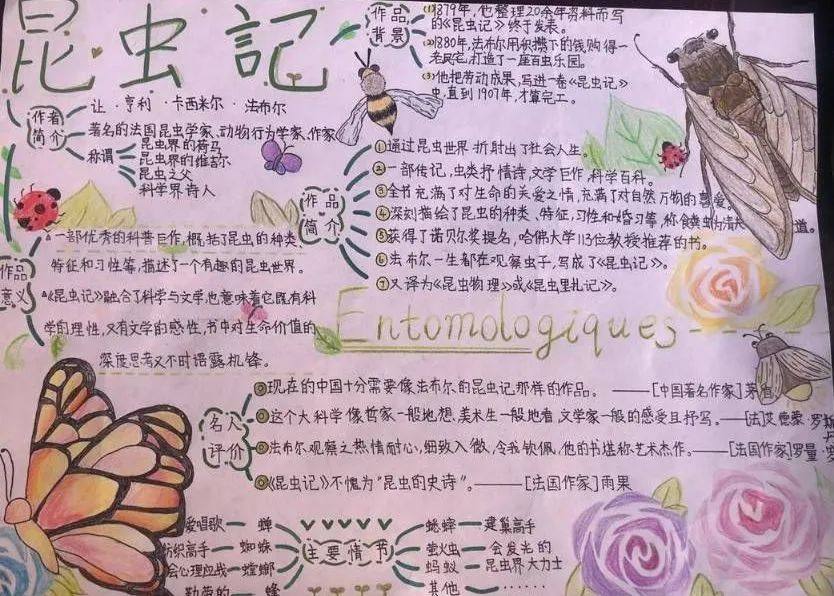 昆虫記
作品背景
(1)1879年，他整理20余年资料而写
的《昆虫记》终于发表。
(2)1880年，法布尔用积攒下的钱购得一
老民宅，打造了一座百虫乐园。
(3)他把劳动成果，写进一卷《昆虫记》
中，直到1907年，才算完工。
作者简介
让·亨利·卡西米尔·法布尔
著名的法国昆虫学家、动物行为学家、作家
称谓
昆虫界的荷马
昆虫界的维吉尔
昆虫之父
科学界诗人
作品简介
①通过昆虫世界折射出了社会人生。
②一部传记，虫类抒情诗，文学巨作，科学百科。
③全书充满了对生命的关爱之情，充满了对自然万物的喜爱。
④深刻描绘了昆虫的种类、特征，习性和婚习等，称食粪虫为清 道。
⑤获得了诺贝尔奖提名，哈佛大学113位教授推荐的书。
⑥法布尔一生都在观察虫子，写成了《昆虫记》。
⑦又译为《昆虫物理》或《昆虫里札记》。
作品意义
一部优秀的科普巨作，概括了昆虫的种类、
特征和习性等，描述了一个有趣的昆虫世界。
《昆虫记》融合了科学与文学，也意味着它既有科
学的理性，又有文学的感性，书中对生命价值的
深度思考又不时语露机锋。
Entomologiques
名人评价
现在的中国十分需要像法布尔的昆虫记那样的作品。——[中国著名作家]茅盾
这个大科学像哲家一般地想，美术生一般地看，文学家一般的感受且抒写。——[法]艾德蒙·罗斯丹
法布尔观察之热情耐心，细致入微，令我钦佩，他的书堪称艺术杰作。——[法国作家]罗曼·
《昆虫记》不愧为“昆虫的史诗”。——[法国作家]雨果
主要情节
爱唱歌—蝉
纺织高手—蜘蛛
会心理应战—螳螂
勤劳的—蜂
蟋蟀—建巢高手
萤火虫—会发光的
蚂蚁—昆虫界大力士
其他—……